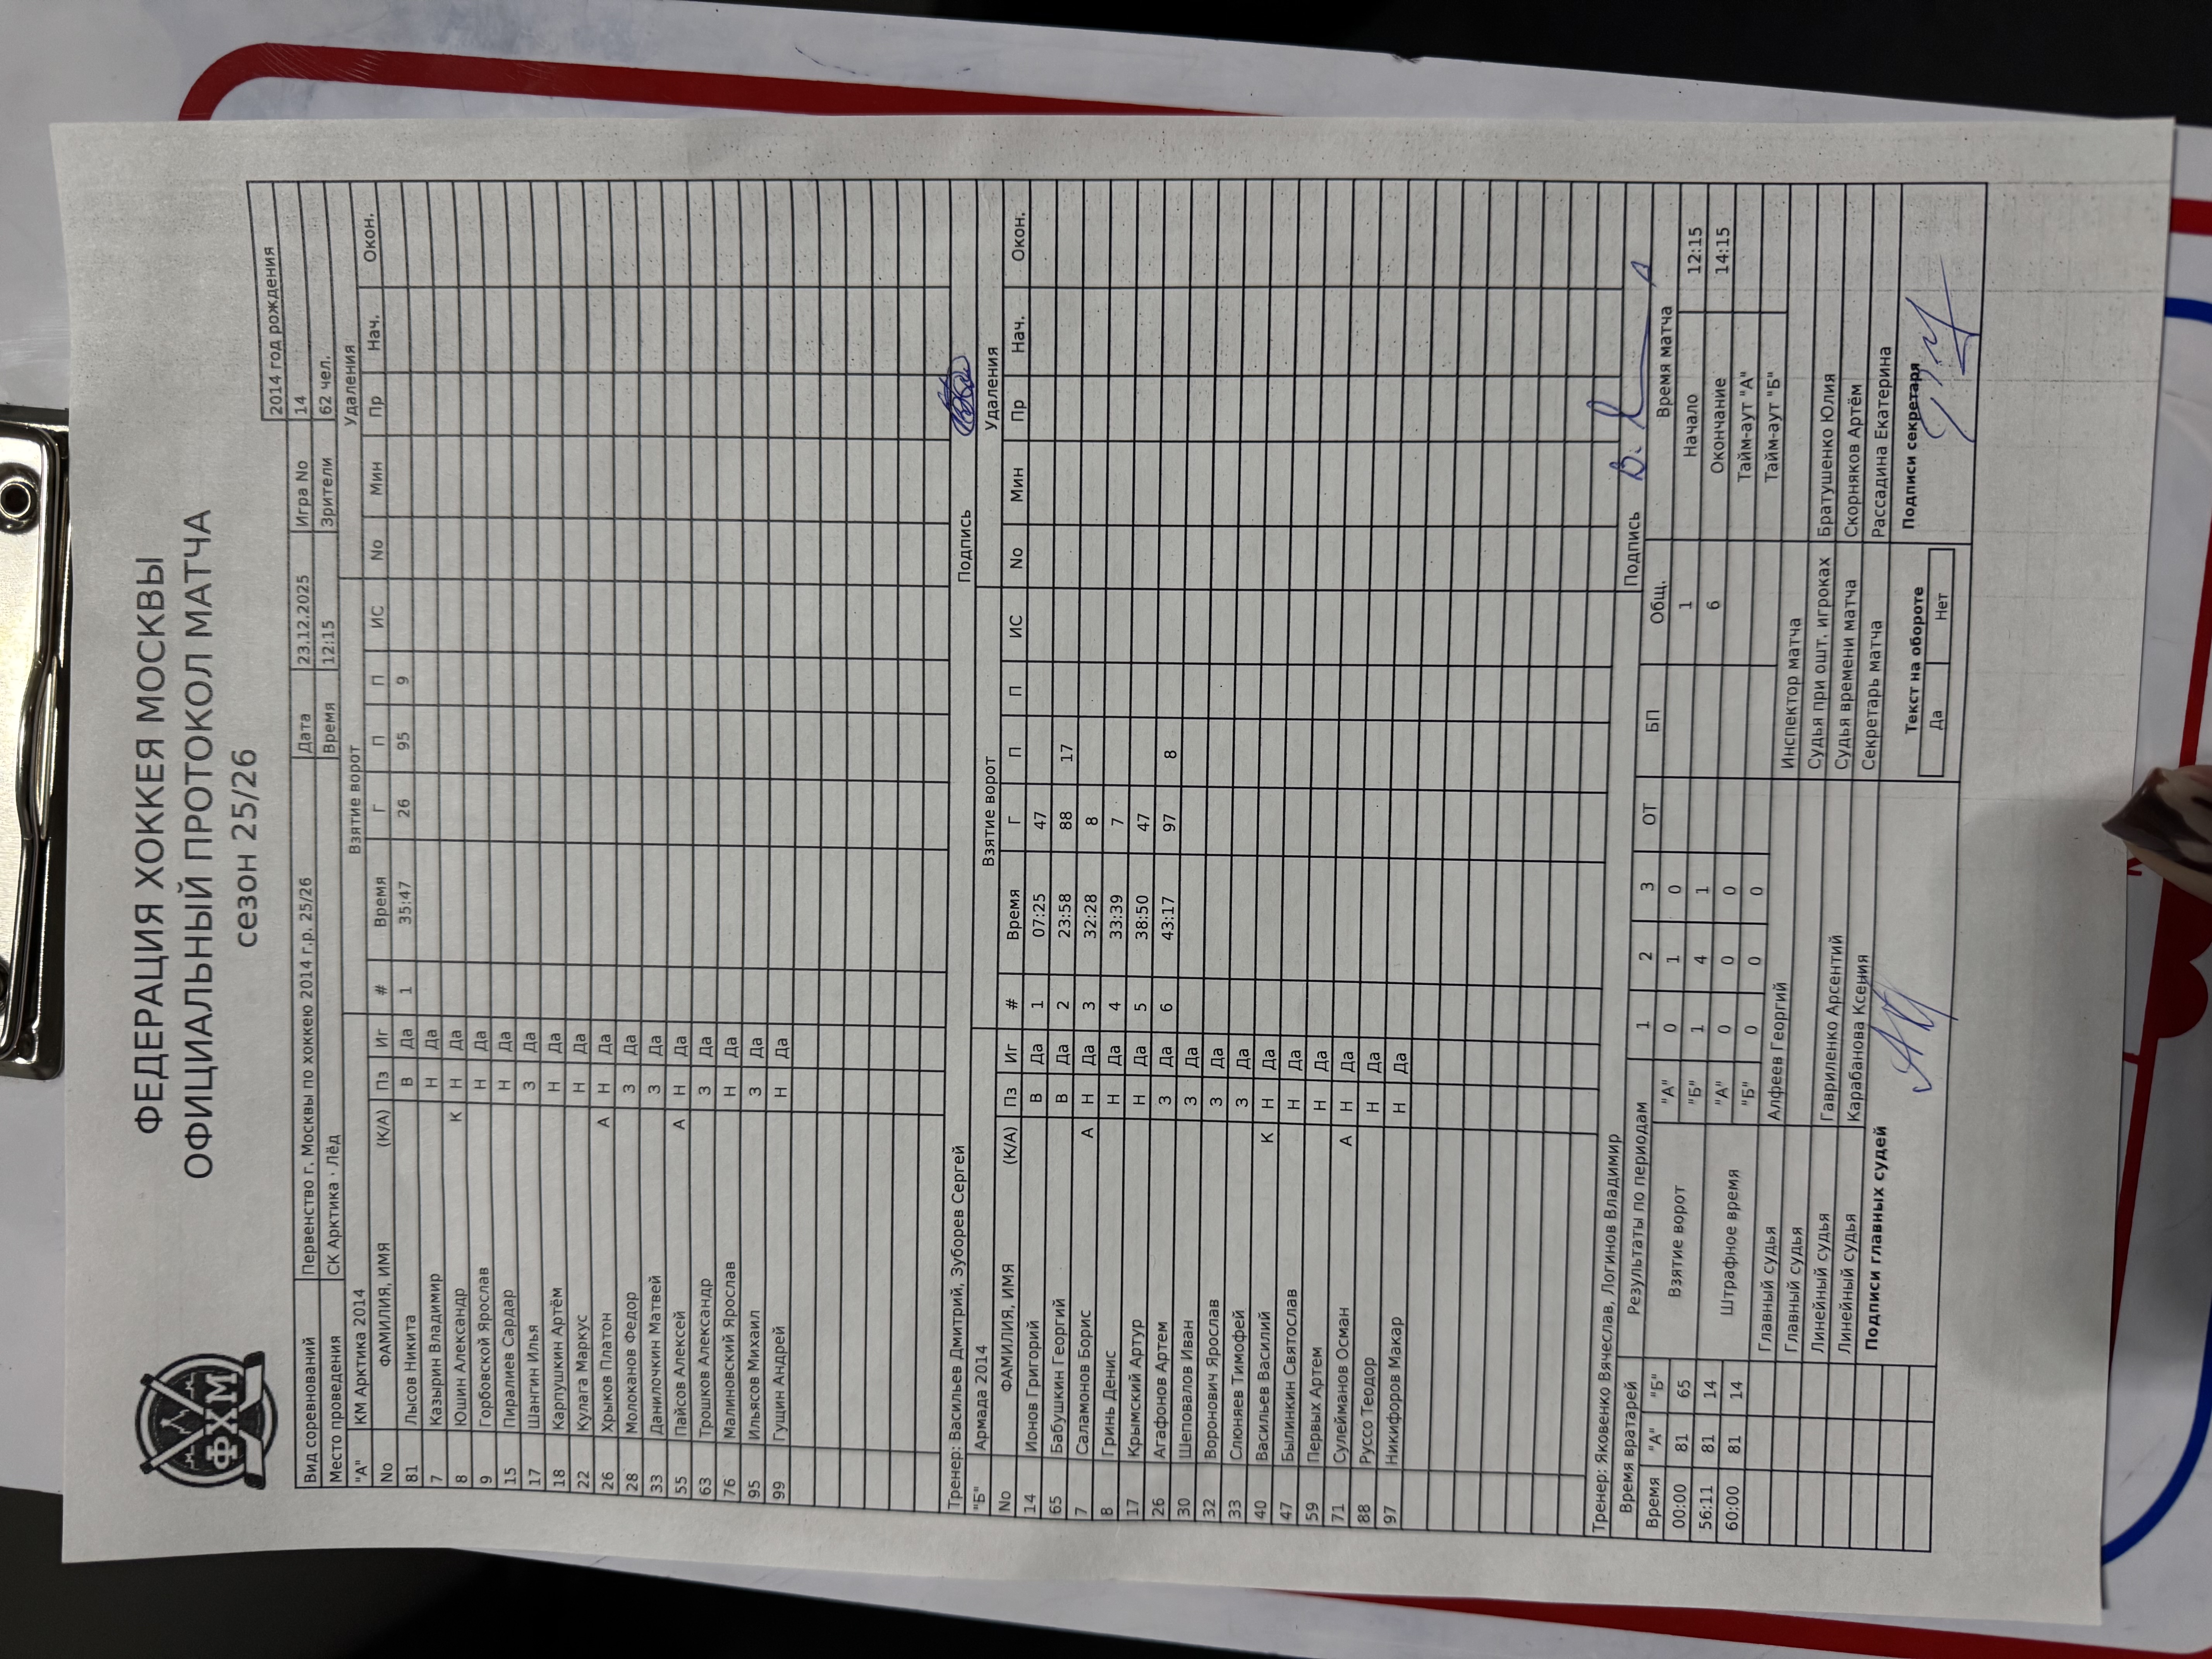 ФЕДЕРАЦИЯ ХОККЕЯ МОСКВЫ
ОФИЦИАЛЬНЫЙ ПРОТОКОЛ МАТЧА
сезон 25/26
ФХМ
2014 год рождения
Вид соревнований Первенство г. Москвы по хоккею 2014 г.р. 25/26 Дата 23.12.2025 Игра No 14
Место проведения СК Арктика · Лёд Время 12:15 Зрители 62 чел.
"А" КМ Арктика 2014 Взятие ворот Удаления
No ФАМИЛИЯ, ИМЯ (К/А) Пз Иг # Время Г П П ИС No Мин Пр Нач. Окон.
81 Лысов Никита В Да 1 35:47 26 95 9
7 Казырин Владимир Н Да
8 Юшин Александр К Н Да
9 Горбовской Ярослав Н Да
15 Пиралиев Сардар Н Да
17 Шангин Илья З Да
18 Карпушкин Артём Н Да
22 Кулага Маркус Н Да
26 Хрыков Платон А Н Да
28 Молоканов Федор З Да
33 Данилочкин Матвей З Да
55 Пайсов Алексей А Н Да
63 Трошков Александр З Да
76 Малиновский Ярослав Н Да
95 Ильясов Михаил З Да
99 Гущин Андрей Н Да
Тренер: Васильев Дмитрий, Зуборев Сергей Подпись
"Б" Армада 2014 Взятие ворот Удаления
No ФАМИЛИЯ, ИМЯ (К/А) Пз Иг # Время Г П П ИС No Мин Пр Нач. Окон.
14 Ионов Григорий В Да 1 07:25 47
65 Бабушкин Георгий В Да 2 23:58 88 17
7 Саламонов Борис А Н Да 3 32:28 8
8 Гринь Денис Н Да 4 33:39 7
17 Крымский Артур Н Да 5 38:50 47
26 Агафонов Артем З Да 6 43:17 97 8
30 Шеповалов Иван З Да
32 Воронович Ярослав З Да
33 Слюняев Тимофей З Да
40 Васильев Василий К Н Да
47 Былинкин Святослав Н Да
59 Первых Артем Н Да
71 Сулейманов Осман А Н Да
88 Руссо Теодор Н Да
97 Никифоров Макар Н Да
Тренер: Яковенко Вячеслав, Логинов Владимир Подпись
Время вратарей Результаты по периодам Время матча
Время "А" "Б" 1 2 3 ОТ БП Общ.
00:00 81 65 Взятие ворот "А" 0 1 0 1 Начало 12:15
56:11 81 14 "Б" 1 4 1 6 Окончание 14:15
60:00 81 14 Штрафное время "А" 0 0 0 Тайм-аут "А"
"Б" 0 0 0 Тайм-аут "Б"
Главный судья Алфеев Георгий Инспектор матча
Главный судья Судья при ошт. игроках Братушенко Юлия
Линейный судья Гавриленко Арсентий Судья времени матча Скорняков Артём
Линейный судья Карабанова Ксения Секретарь матча Рассадина Екатерина
Подписи главных судей Текст на обороте Подписи секретаря
Да Нет